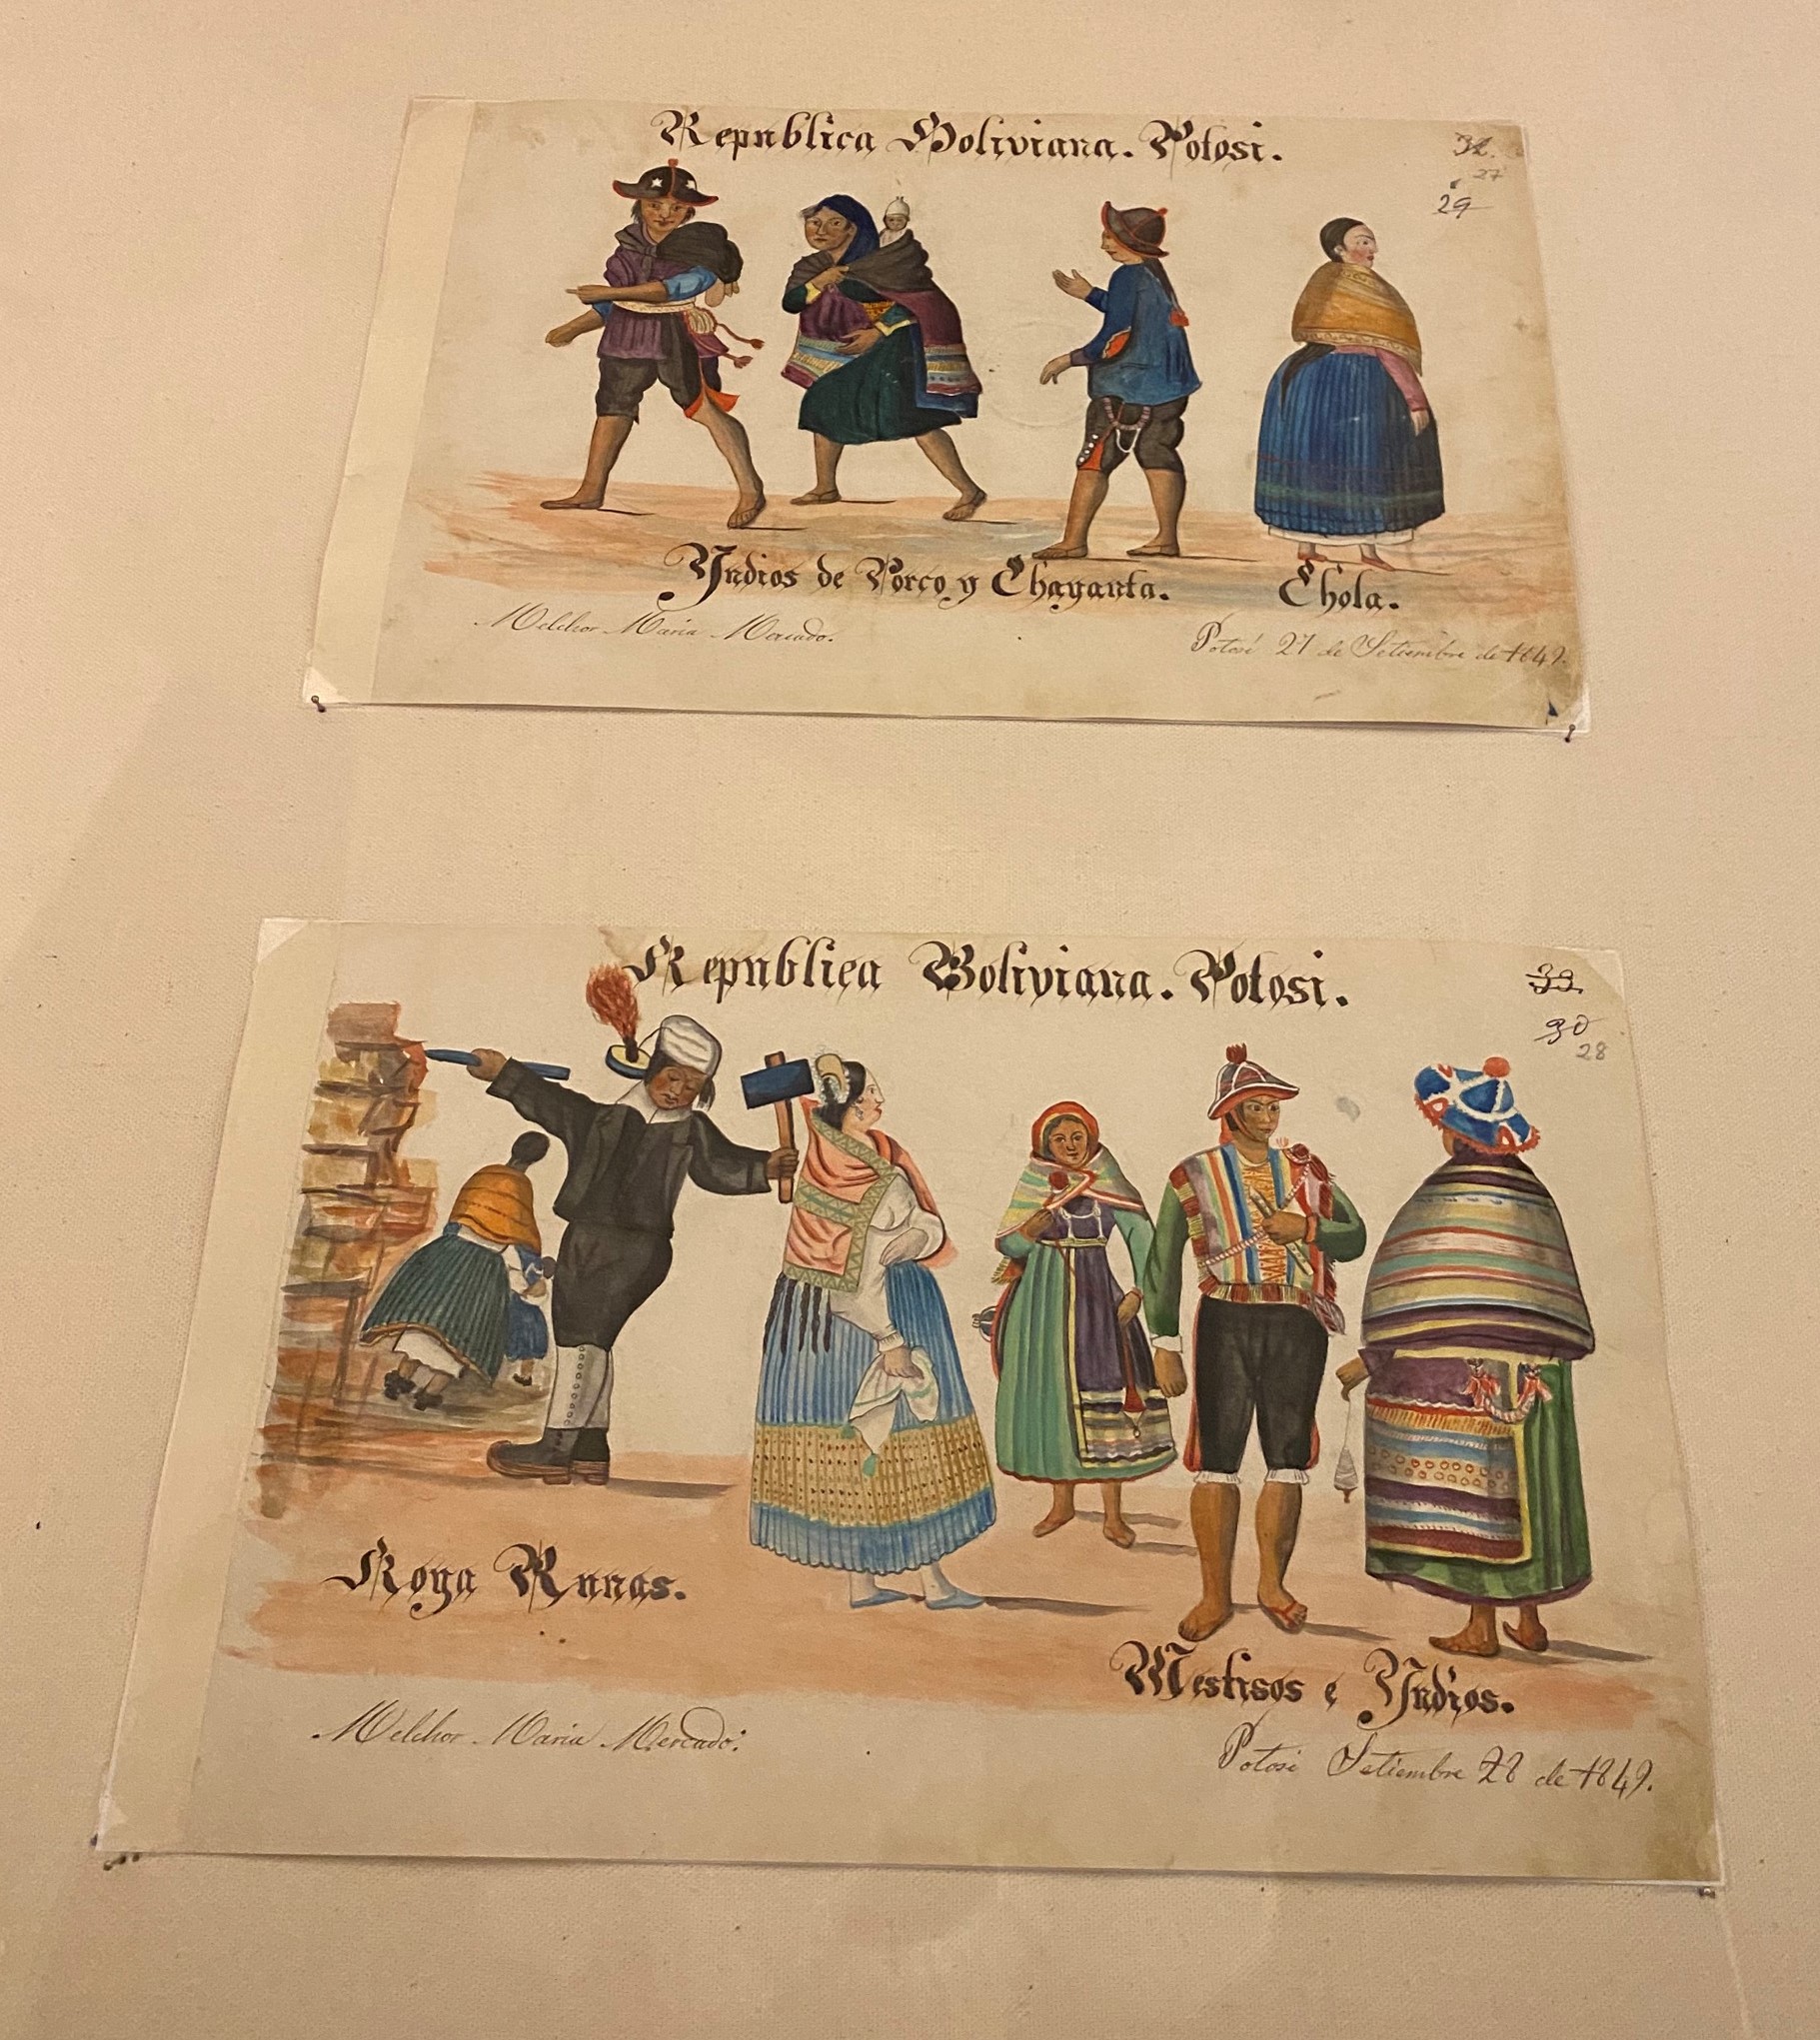 Republica Boliviana. Potosi.
32.
27
29
Yndios de Porco y Chayanta.
Chola.
Melchor María Mercado.
Potosí 27 de Setiembre de 1849.
Republica Boliviana. Potosi.
33.
30
28
Koya Runas.
Mestisos e Yndios.
Melchor María Mercado.
Potosí Setiembre 28 de 1849.